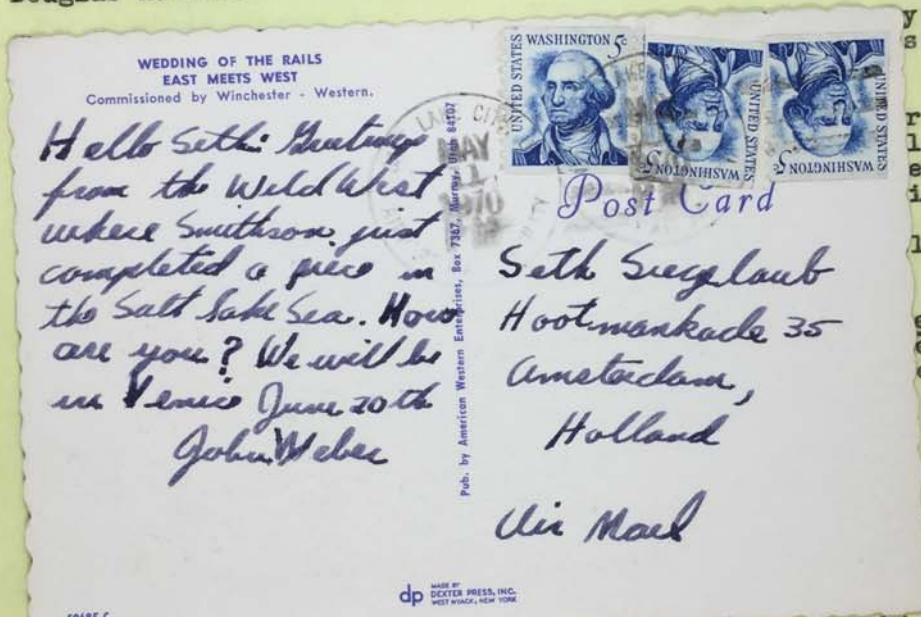 WEDDING OF THE RAILS
EAST MEETS WEST
Commissioned by Winchester - Western.
Hello Seth: Greetings
from the Wild West
where Smithson just
completed a piece in
the Salt Lake Sea. How
are you? We will be
in Venice June 20th
John Weber
Pub. by American Western Enterprises, Box 7367, Murray, Utah 84107
UNITED STATES
WASHINGTON 5c
UNITED STATES
WASHINGTON 5c
UNITED STATES
WASHINGTON 5c
LAKE CITY
MAY
11
1970
Post Card
Seth Siegelaub
Hootmankade 35
Amsterdam,
Holland
Air Mail
dp
MADE BY
DEXTER PRESS, INC.
WEST NYACK, NEW YORK